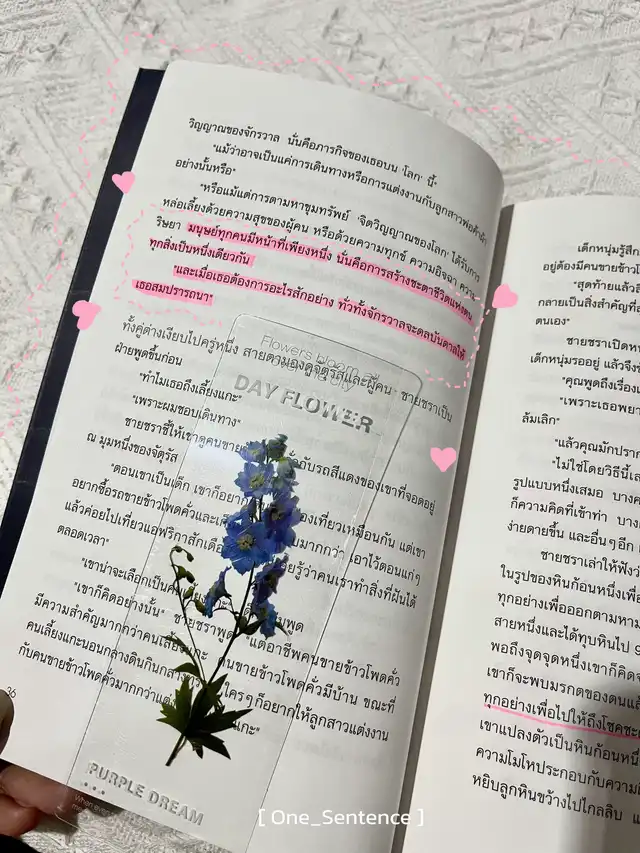 วิญญาณของจักรวาล นั่นคือภารกิจของเธอบน 'โลก' นี้"
"แม้ว่าอาจเป็นแค่การเดินทางหรือการแต่งงานกับลูกสาวพ่อค้าผ้า
อย่างนั้นหรือ"
"หรือแม้แต่การตามหาขุมทรัพย์ 'จิตวิญญาณของโลก' ได้รับการ
หล่อเลี้ยงด้วยความสุขของผู้คน หรือด้วยความทุกข์ ความอิจฉา ความ
ริษยา มนุษย์ทุกคนมีหน้าที่เพียงหนึ่ง นั่นคือการสร้างชะตาชีวิตแห่งตน
ทุกสิ่งเป็นหนึ่งเดียวกัน
"และเมื่อเธอต้องการอะไรสักอย่าง ทั่วทั้งจักรวาลจะดลบันดาลให้
เธอสมปรารถนา"
ทั้งคู่ต่างเงียบไปครู่หนึ่ง สายตามองดูจัตุรัสและผู้คน ชายชราเป็น
ฝ่ายพูดขึ้นก่อน
"ทำไมเธอถึงเลี้ยงแกะ"
"เพราะผมชอบเดินทาง"
ชายชราชี้ให้เขาดูคนขาย กับรถสีแดงของเขาที่จอดอยู่
ณ มุมหนึ่งของจัตุรัส
"ตอนเขาเป็นเด็ก เขาก็อยาก งเที่ยวเหมือนกัน แต่เขา
อยากซื้อรถขายข้าวโพดคั่วและเก็ บมากกว่า เอาไว้ตอนแก่ๆ
แล้วค่อยไปเที่ยวแอฟริกาสักเดือ ยรู้ว่าคนเราทำสิ่งที่ฝันได้
ตลอดเวลา"
"เขาน่าจะเลือกเป็นคน พูด
"เขาก็คิดอย่างนั้น" ชายชราพูด "แต่อาชีพคนขายข้าวโพดคั่ว
มีความสำคัญมากกว่าคนเลี้ยงแกะ คนขายข้าวโพดคั่วมีบ้าน ขณะที่
คนเลี้ยงแกะนอนกลางดินกินกลาง ใครๆ ก็อยากให้ลูกสาวแต่งงาน
กับคนขายข้าวโพดคั่วมากกว่า แกะ"
36
Flowers bloom
DAY FLOWER
PURPLE DREAM
เด็กหนุ่มรู้สึก
อยู่ต้องมีคนขายข้าว
"สุดท้ายแล้วสิ
กลายเป็นสิ่งสำคัญที่
ตนเอง"
ชายชราเปิดหน
เด็กหนุ่มรออยู่ แล้วจึง
"คุณพูดถึงเรื่อง
"เพราะเธอพยา
ล้มเลิก"
"แล้วคุณมักปราก
"ไม่ใช่โดยวิธีนี้เส
รูปแบบหนึ่งเสมอ บาง
ก็ความคิดที่เข้าท่า บาง
ง่ายดายขึ้น และอื่นๆ อีก
ชายชราเล่าให้ฟังว่
ในรูปของหินก้อนหนึ่งเพื่อ
ทุกอย่างเพื่อออกตามหาม
สายหนึ่งและได้ทุบหินไป 9
พอถึงจุดจุดหนึ่งเขาก็คิดจ
เขาก็จะพบมรกตของตนแล้
ทุกอย่างเพื่อไปให้ถึงโชคชะ
เขาแปลงตัวเป็นหินก้อนหนึ่
ความโมโหประกอบกับความผิ
หยิบลูกหินขว้างไปไกลลิบ แ
[ One_Sentence ]